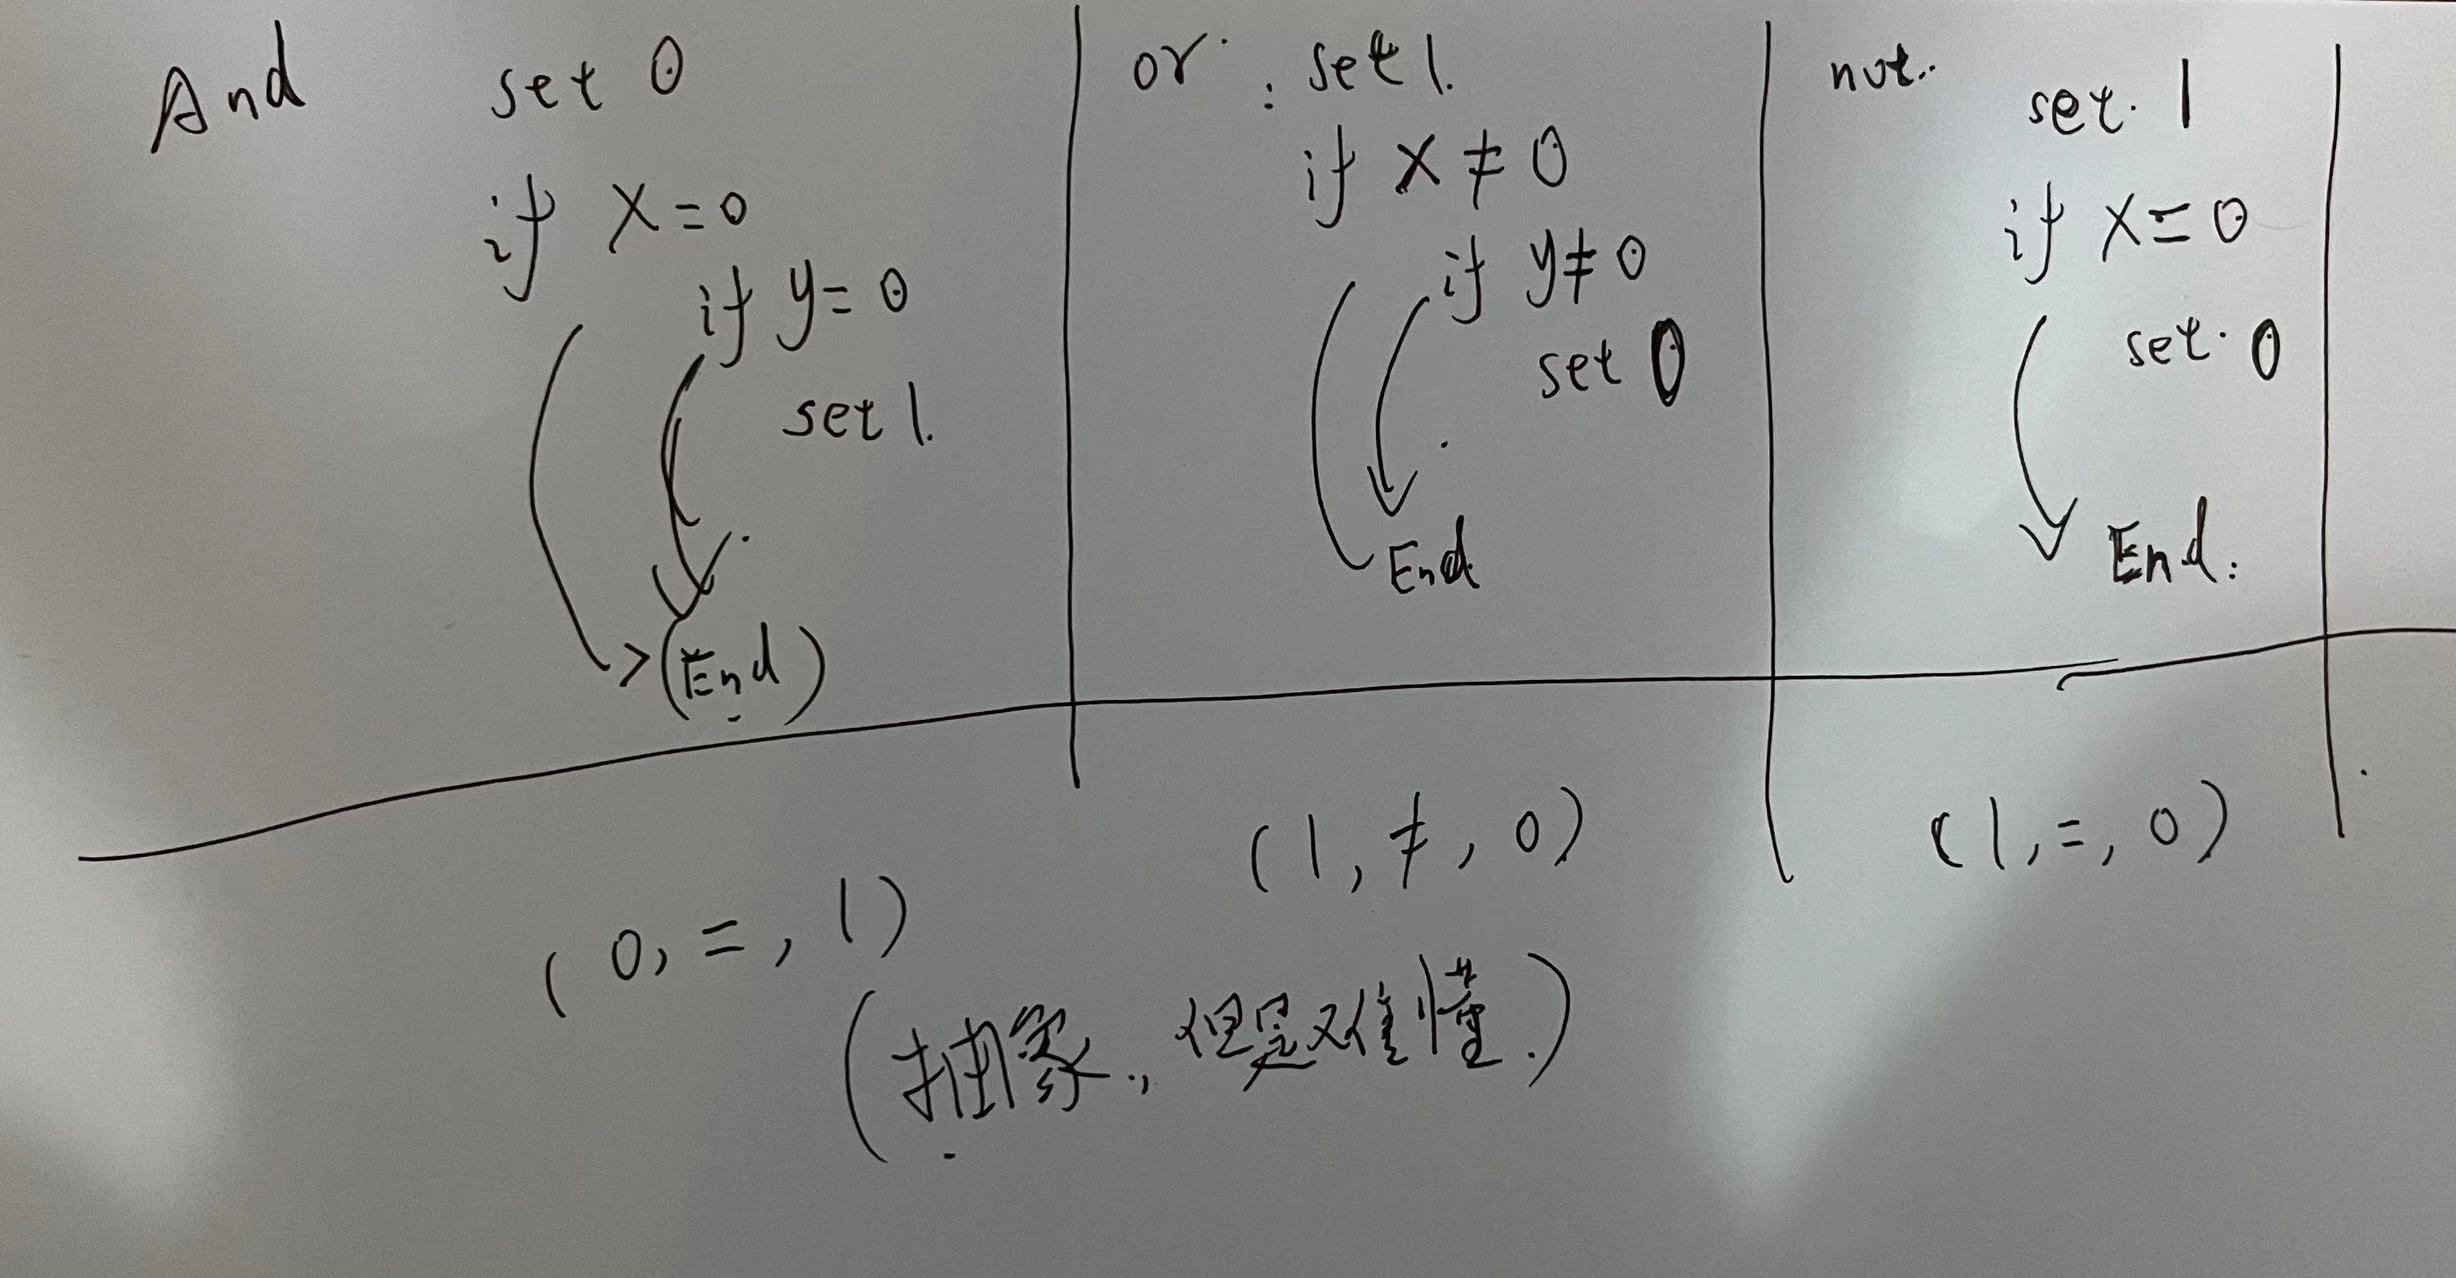 And set 0
if X=0
if y=0
set 1.
(End)
or: set 1.
if X≠0
if y≠0
set 0
End
not. set. 1
if X=0
set. 0
End.
(0, =, 1)
(1, ≠, 0)
(1, =, 0)
(抽象., 但是又难懂.)